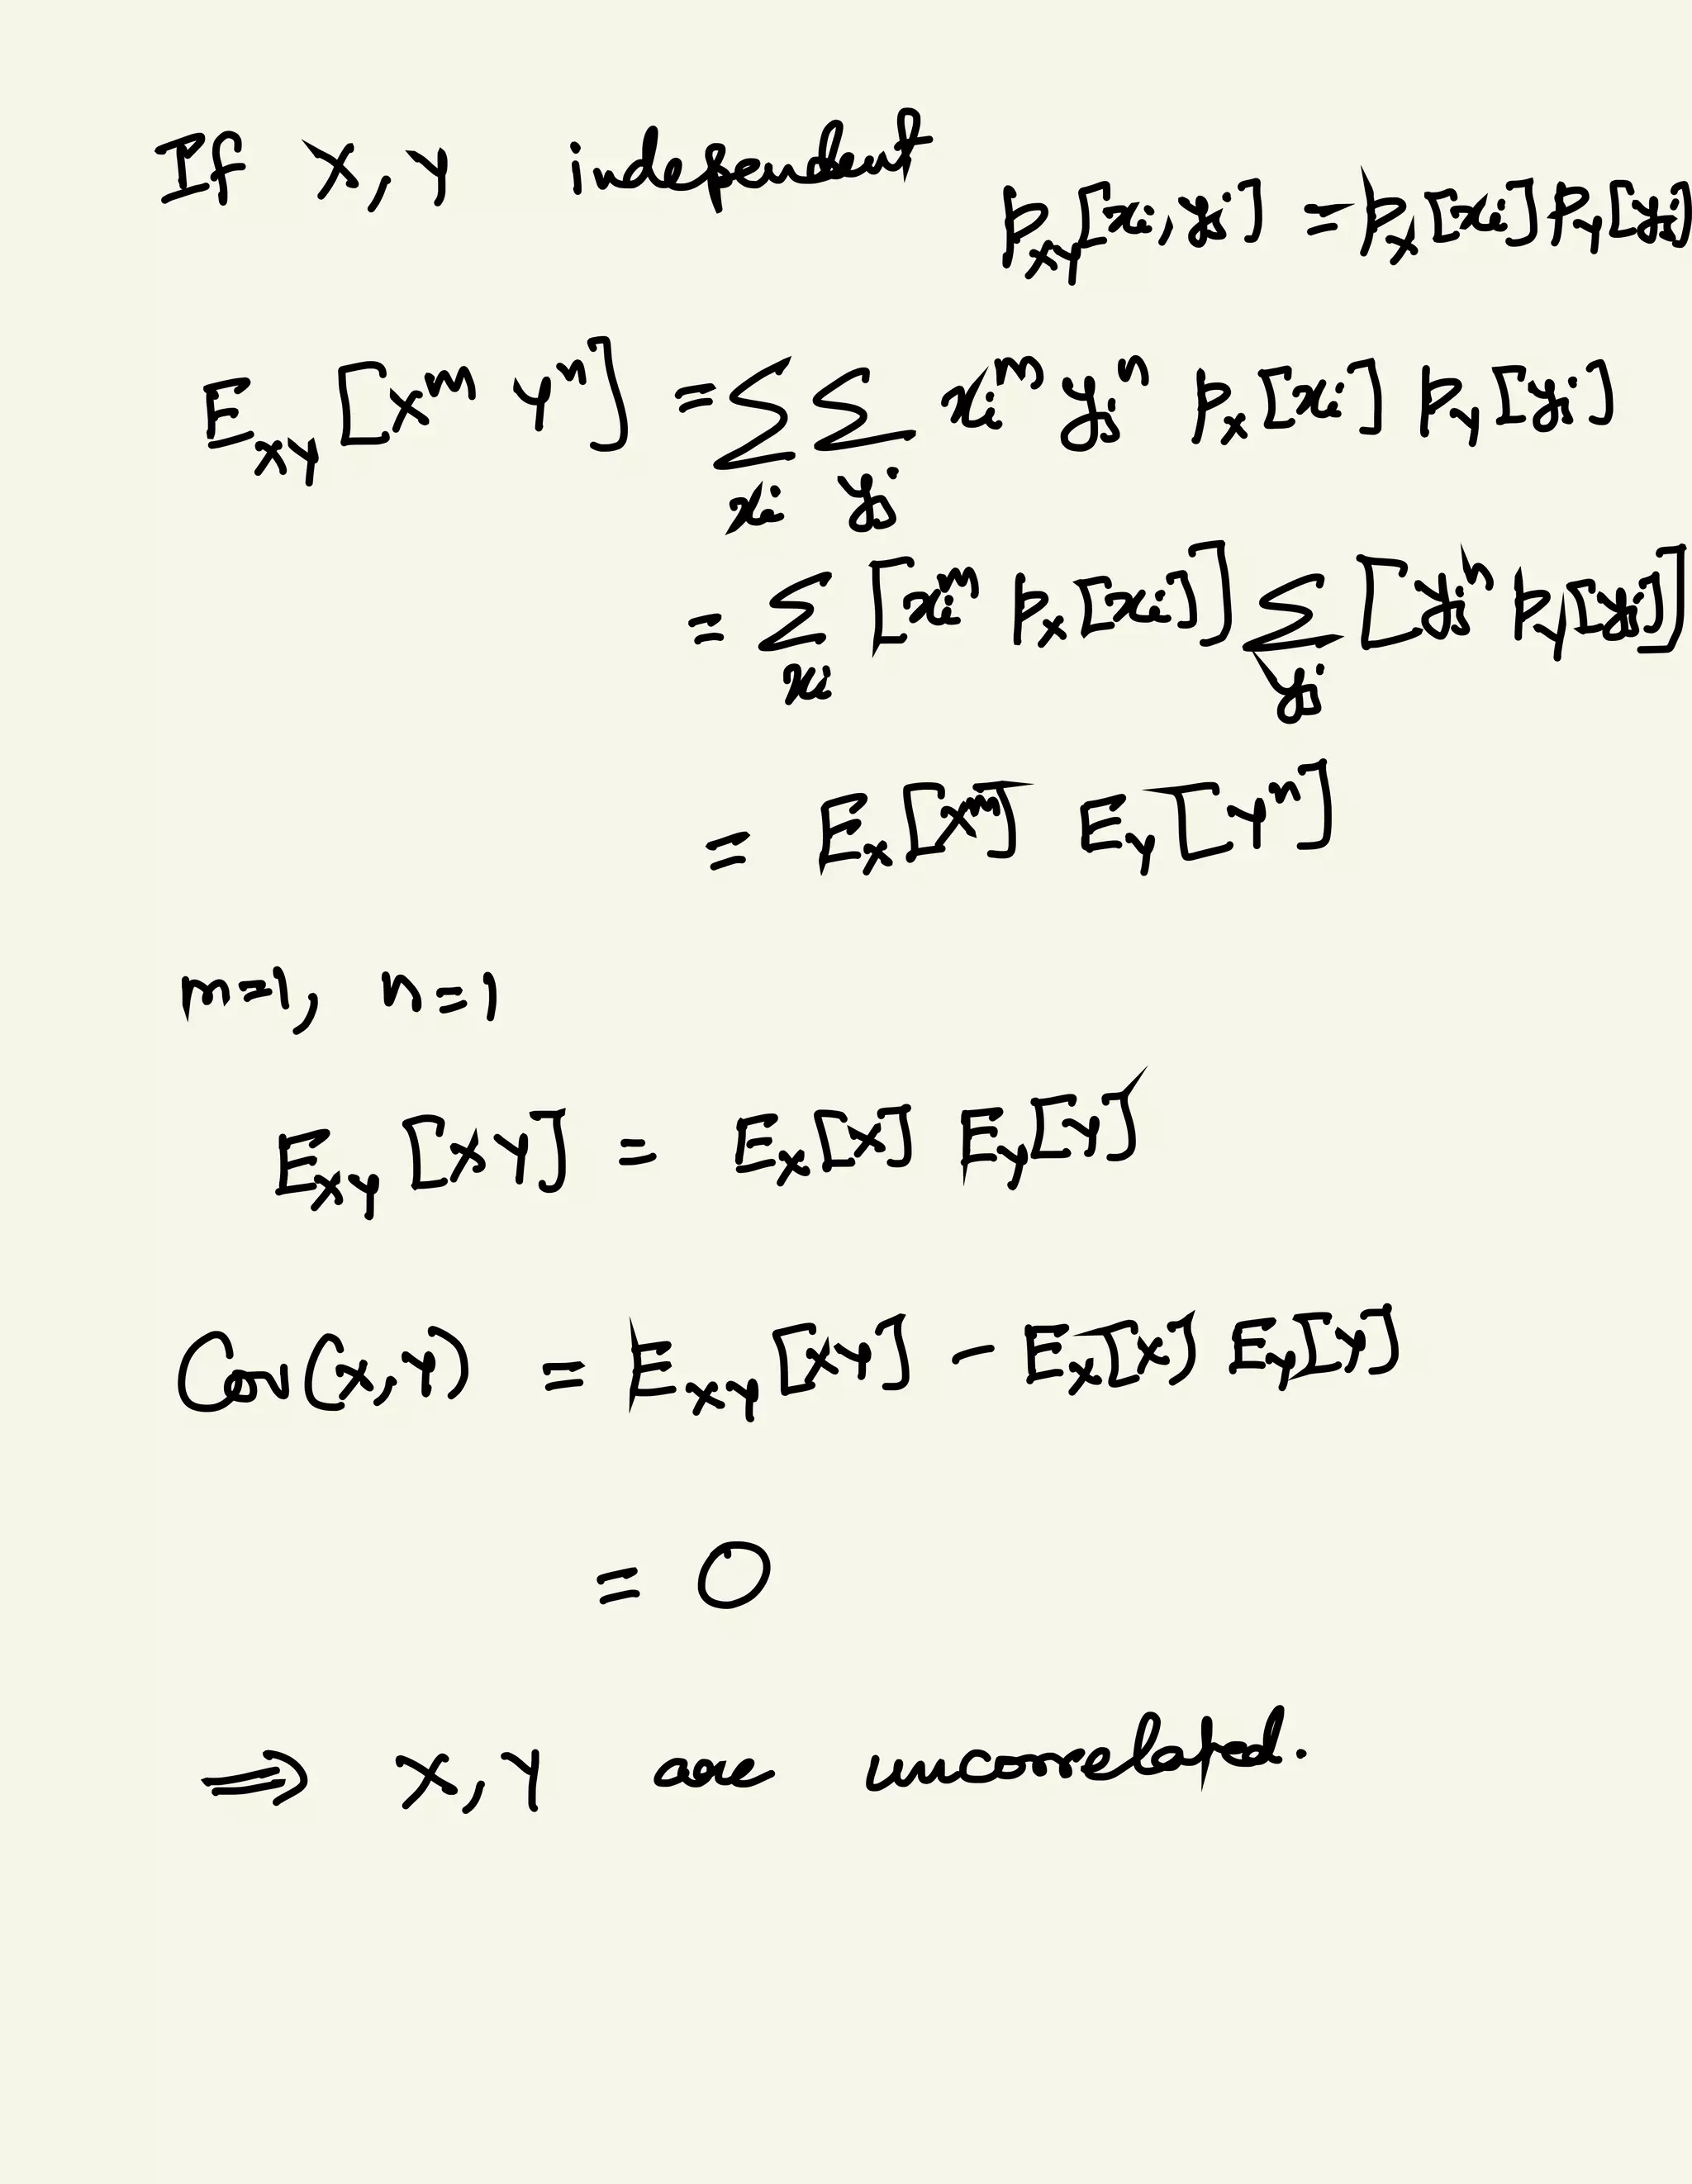 If X, Y independent
p_{XY}[x_i, y_j] = p_X[x_i] p_Y[y_j]
E_{XY}[X^m Y^n] = ∑_{x_i} ∑_{y_j} x_i^m y_j^n p_X[x_i] p_Y[y_j]
= ∑_{x_i} [x_i^m p_X[x_i]] ∑_{y_j} [y_j^n p_Y[y_j]]
= E_X[X^m] E_Y[Y^n]
m=1, n=1
E_{XY}[XY] = E_X[X] E_Y[Y]
Cov(X,Y) = E_{XY}[XY] - E_X[X] E_Y[Y]
= 0
⇒ X, Y are uncorrelated.